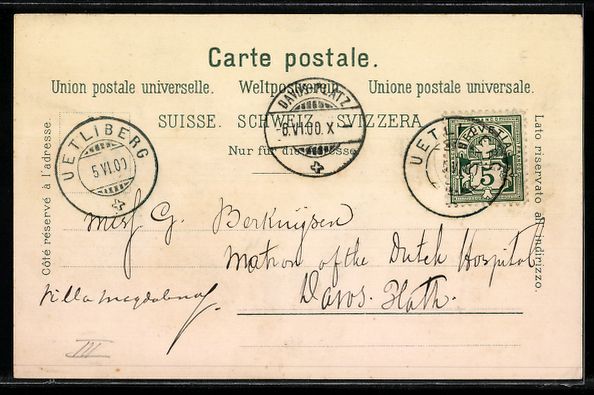 Carte postale.
Union postale universelle. Weltpostverein. Unione postale universale.
SUISSE. SCHWEIZ. SVIZZERA.
Nur für die Adresse
Côté réservé à l'adresse.
Lato riservato all'indirizzo.
UETLIBERG
5 VI.00
DAVOS-PLATZ
-6.VI.00. X
UETLI
HELVETIA
5
G. Berkuijsen
Matron of the Dutch Hospital
Davos-Platz.
Villa
III